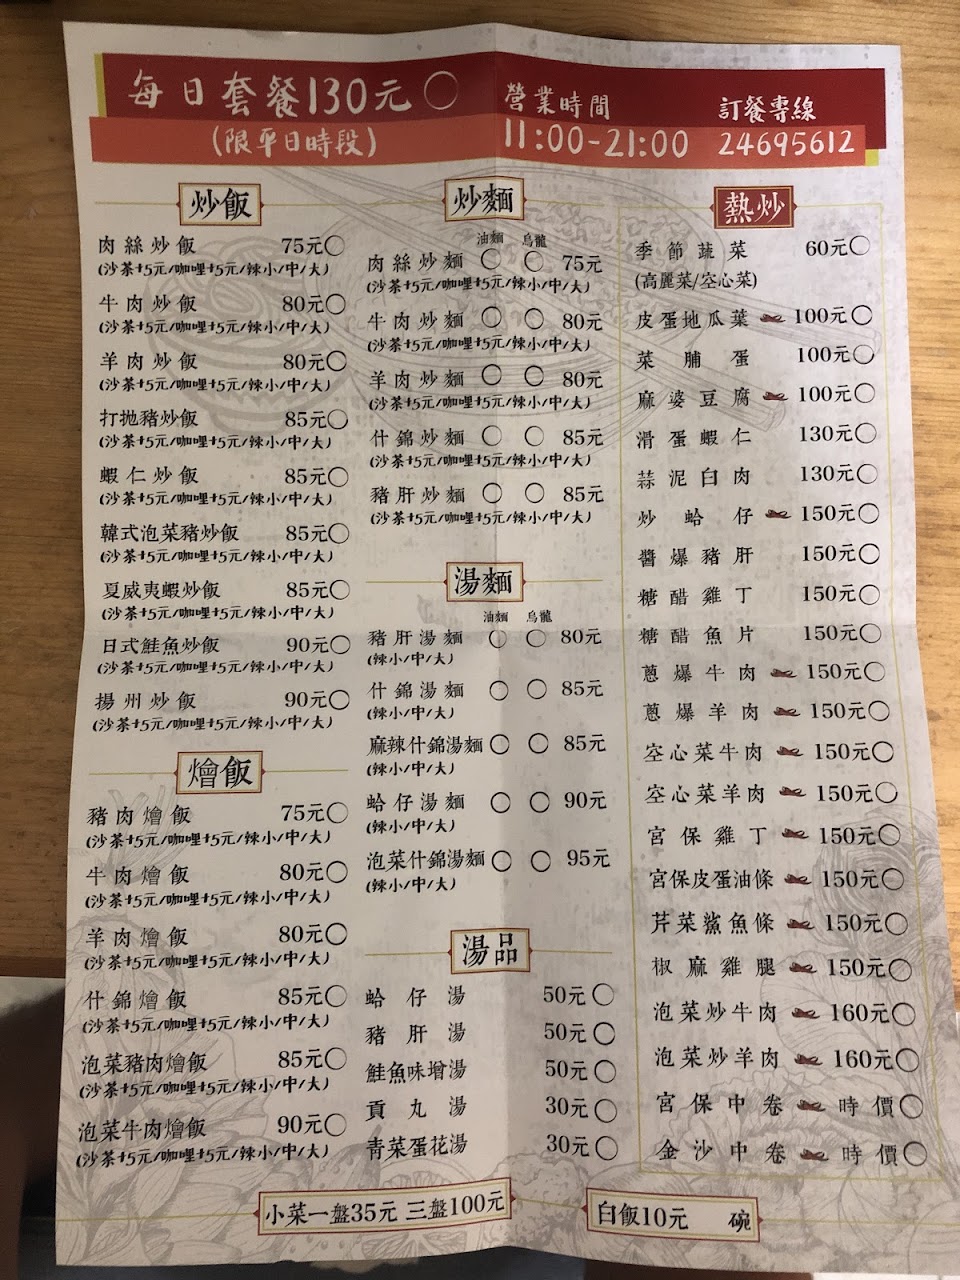 每日套餐130元○
(限平日時段)
營業時間
11:00-21:00
訂餐專線
24695612
炒飯
肉絲炒飯 75元○
(沙茶+5元/咖哩+5元/辣小/中/大)
牛肉炒飯 80元○
(沙茶+5元/咖哩+5元/辣小/中/大)
羊肉炒飯 80元○
(沙茶+5元/咖哩+5元/辣小/中/大)
打拋豬炒飯 85元○
(沙茶+5元/咖哩+5元/辣小/中/大)
蝦仁炒飯 85元○
(沙茶+5元/咖哩+5元/辣小/中/大)
韓式泡菜豬炒飯 85元○
(沙茶+5元/咖哩+5元/辣小/中/大)
夏威夷蝦炒飯 85元○
(沙茶+5元/咖哩+5元/辣小/中/大)
日式鮭魚炒飯 90元○
(沙茶+5元/咖哩+5元/辣小/中/大)
揚州炒飯 90元○
(沙茶+5元/咖哩+5元/辣小/中/大)
燴飯
豬肉燴飯 75元○
(沙茶+5元/咖哩+5元/辣小/中/大)
牛肉燴飯 80元○
(沙茶+5元/咖哩+5元/辣小/中/大)
羊肉燴飯 80元○
(沙茶+5元/咖哩+5元/辣小/中/大)
什錦燴飯 85元○
(沙茶+5元/咖哩+5元/辣小/中/大)
泡菜豬肉燴飯 85元○
(沙茶+5元/咖哩+5元/辣小/中/大)
泡菜牛肉燴飯 90元○
(沙茶+5元/咖哩+5元/辣小/中/大)
炒麵
油麵 烏龍
肉絲炒麵 ○ ○ 75元
(沙茶+5元/咖哩+5元/辣小/中/大)
牛肉炒麵 ○ ○ 80元
(沙茶+5元/咖哩+5元/辣小/中/大)
羊肉炒麵 ○ ○ 80元
(沙茶+5元/咖哩+5元/辣小/中/大)
什錦炒麵 ○ ○ 85元
(沙茶+5元/咖哩+5元/辣小/中/大)
豬肝炒麵 ○ ○ 85元
(沙茶+5元/咖哩+5元/辣小/中/大)
湯麵
油麵 烏龍
豬肝湯麵 ○ ○ 80元
(辣小/中/大)
什錦湯麵 ○ ○ 85元
(辣小/中/大)
麻辣什錦湯麵 ○ ○ 85元
(辣小/中/大)
蛤仔湯麵 ○ ○ 90元
(辣小/中/大)
泡菜什錦湯麵 ○ ○ 95元
(辣小/中/大)
湯品
蛤仔湯 50元○
豬肝湯 50元○
鮭魚味增湯 50元○
貢丸湯 30元○
青菜蛋花湯 30元○
熱炒
季節蔬菜 60元○
(高麗菜/空心菜)
皮蛋地瓜葉 100元○
菜脯蛋 100元○
麻婆豆腐 100元○
滑蛋蝦仁 130元○
蒜泥白肉 130元○
炒蛤仔 150元○
醬爆豬肝 150元○
糖醋雞丁 150元○
糖醋魚片 150元○
蔥爆牛肉 150元○
蔥爆羊肉 150元○
空心菜牛肉 150元○
空心菜羊肉 150元○
宮保雞丁 150元○
宮保皮蛋油條 150元○
芹菜鯊魚條 150元○
椒麻雞腿 150元○
泡菜炒牛肉 160元○
泡菜炒羊肉 160元○
宮保中卷 時價○
金沙中卷 時價○
小菜一盤35元 三盤100元
白飯10元 碗